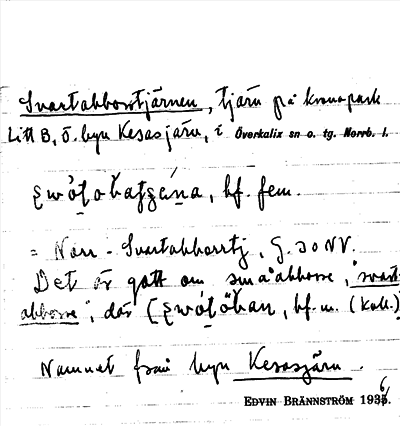 Svartabborrtjärnen, tjärn på kronopark
Litt B, ö. byn Kesasjärv, i Överkalix sn o. tg. Norrb. l.
bf. fem.
= Norr-Svartabborrtj, G. 30 NV.
Det är gott om småabborre, "svart-
abborre", där bf. m. (koll.)
Namnet från byn Kesasjärv.
EDVIN BRÄNNSTRÖM 1936.